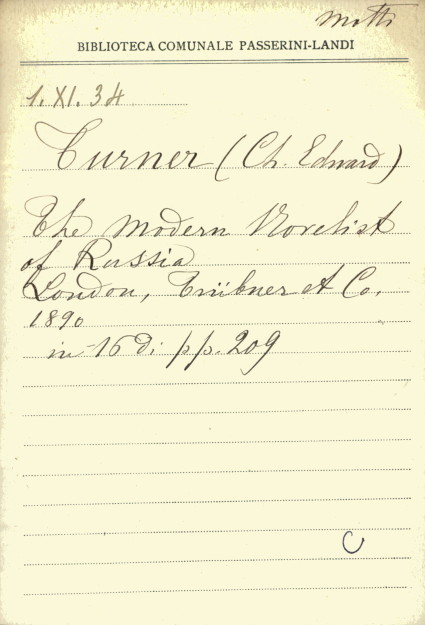 Motti
BIBLIOTECA COMUNALE PASSERINI-LANDI
1. XI. 34
Turner (Ch. Edward)
The Modern Novelist
of Russia
London, Trübner et Co.
1890
in-16 di pp. 209
C